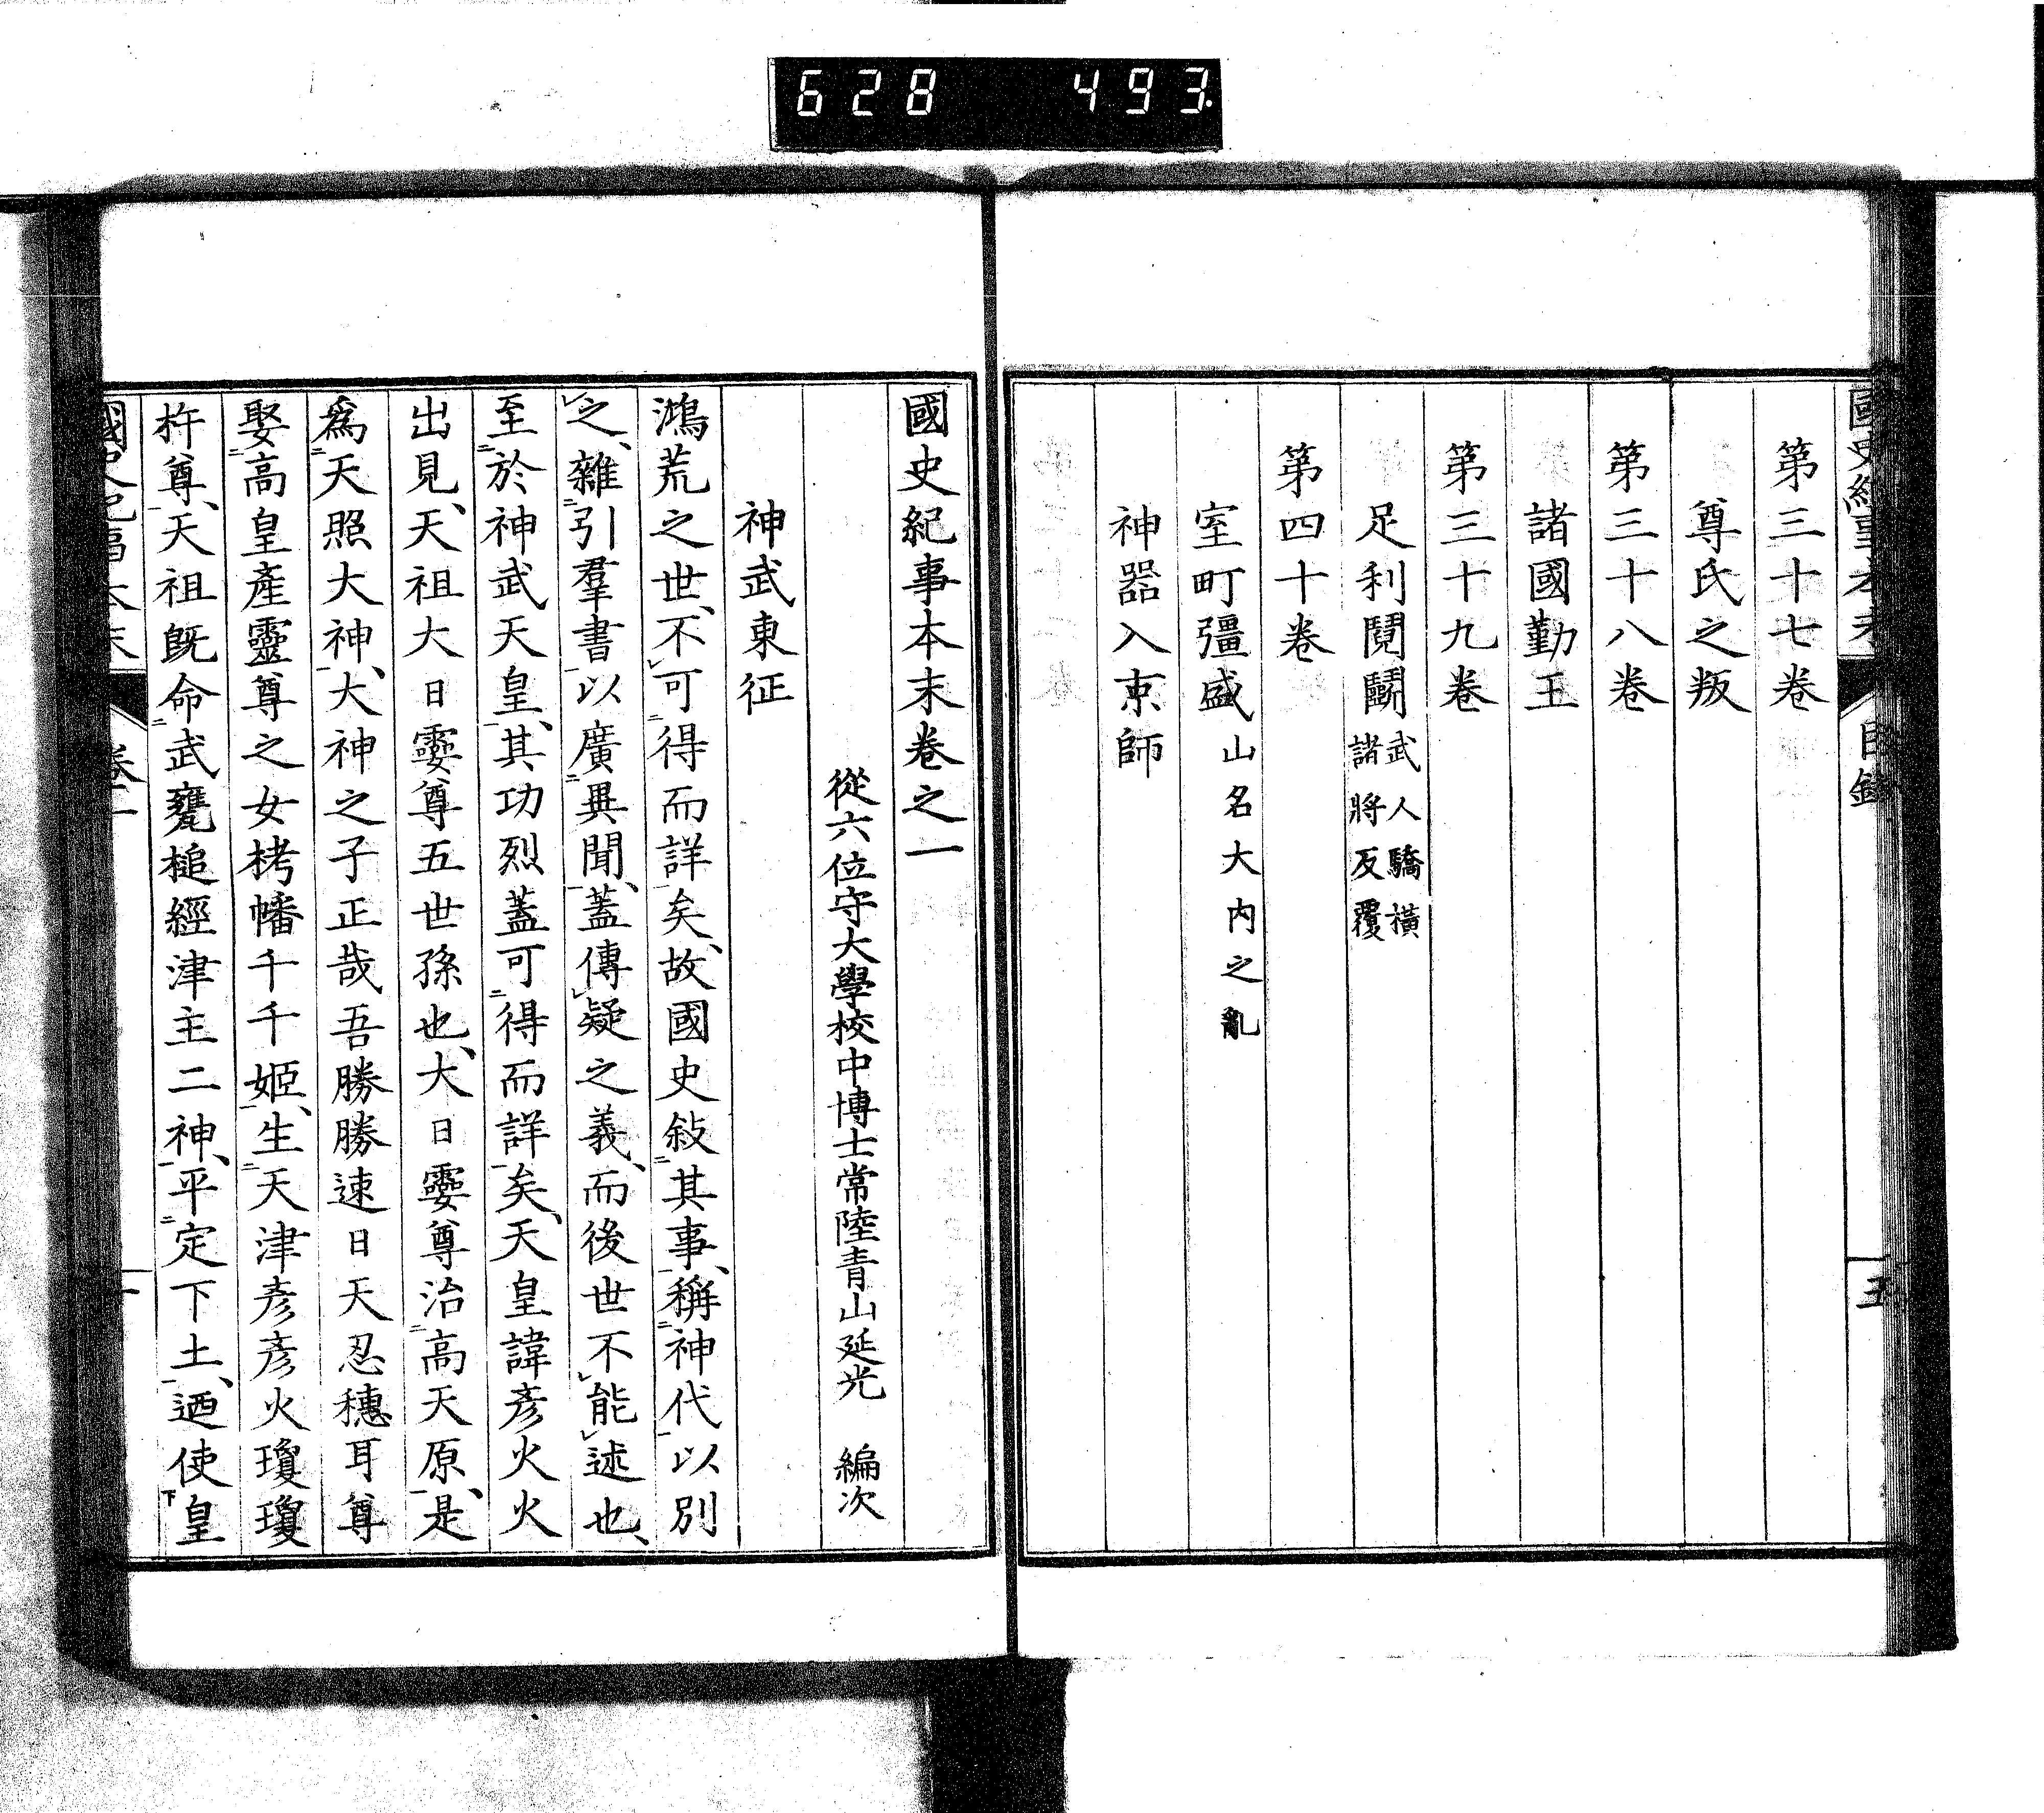 628 493
第三十七卷
尊氏之叛
第三十八卷
諸國勤王
第三十九卷
足利鬩鬭武人驕橫諸將反覆
第四十卷
室町彊盛山名大內之亂
神器入京師
目錄
五
國史紀事本末卷之一
從六位守大學校中博士常陸青山延光 編次
神武東征
鴻荒之世、不可得而詳矣、故國史敍其事、稱神代以別
之、雜引羣書以廣異聞、蓋傳疑之義、而後世不能述也、
至於神武天皇、其功烈蓋可得而詳矣、天皇諱彥火火
出見、天祖大日孁尊五世孫也、大日孁尊治高天原、是
爲天照大神、大神之子正哉吾勝勝速日天忍穗耳尊
娶高皇產靈尊之女栲幡千千姬、生天津彥彥火瓊瓊
杵尊、天祖既命武甕槌經津主二神、平定下土、迺使皇